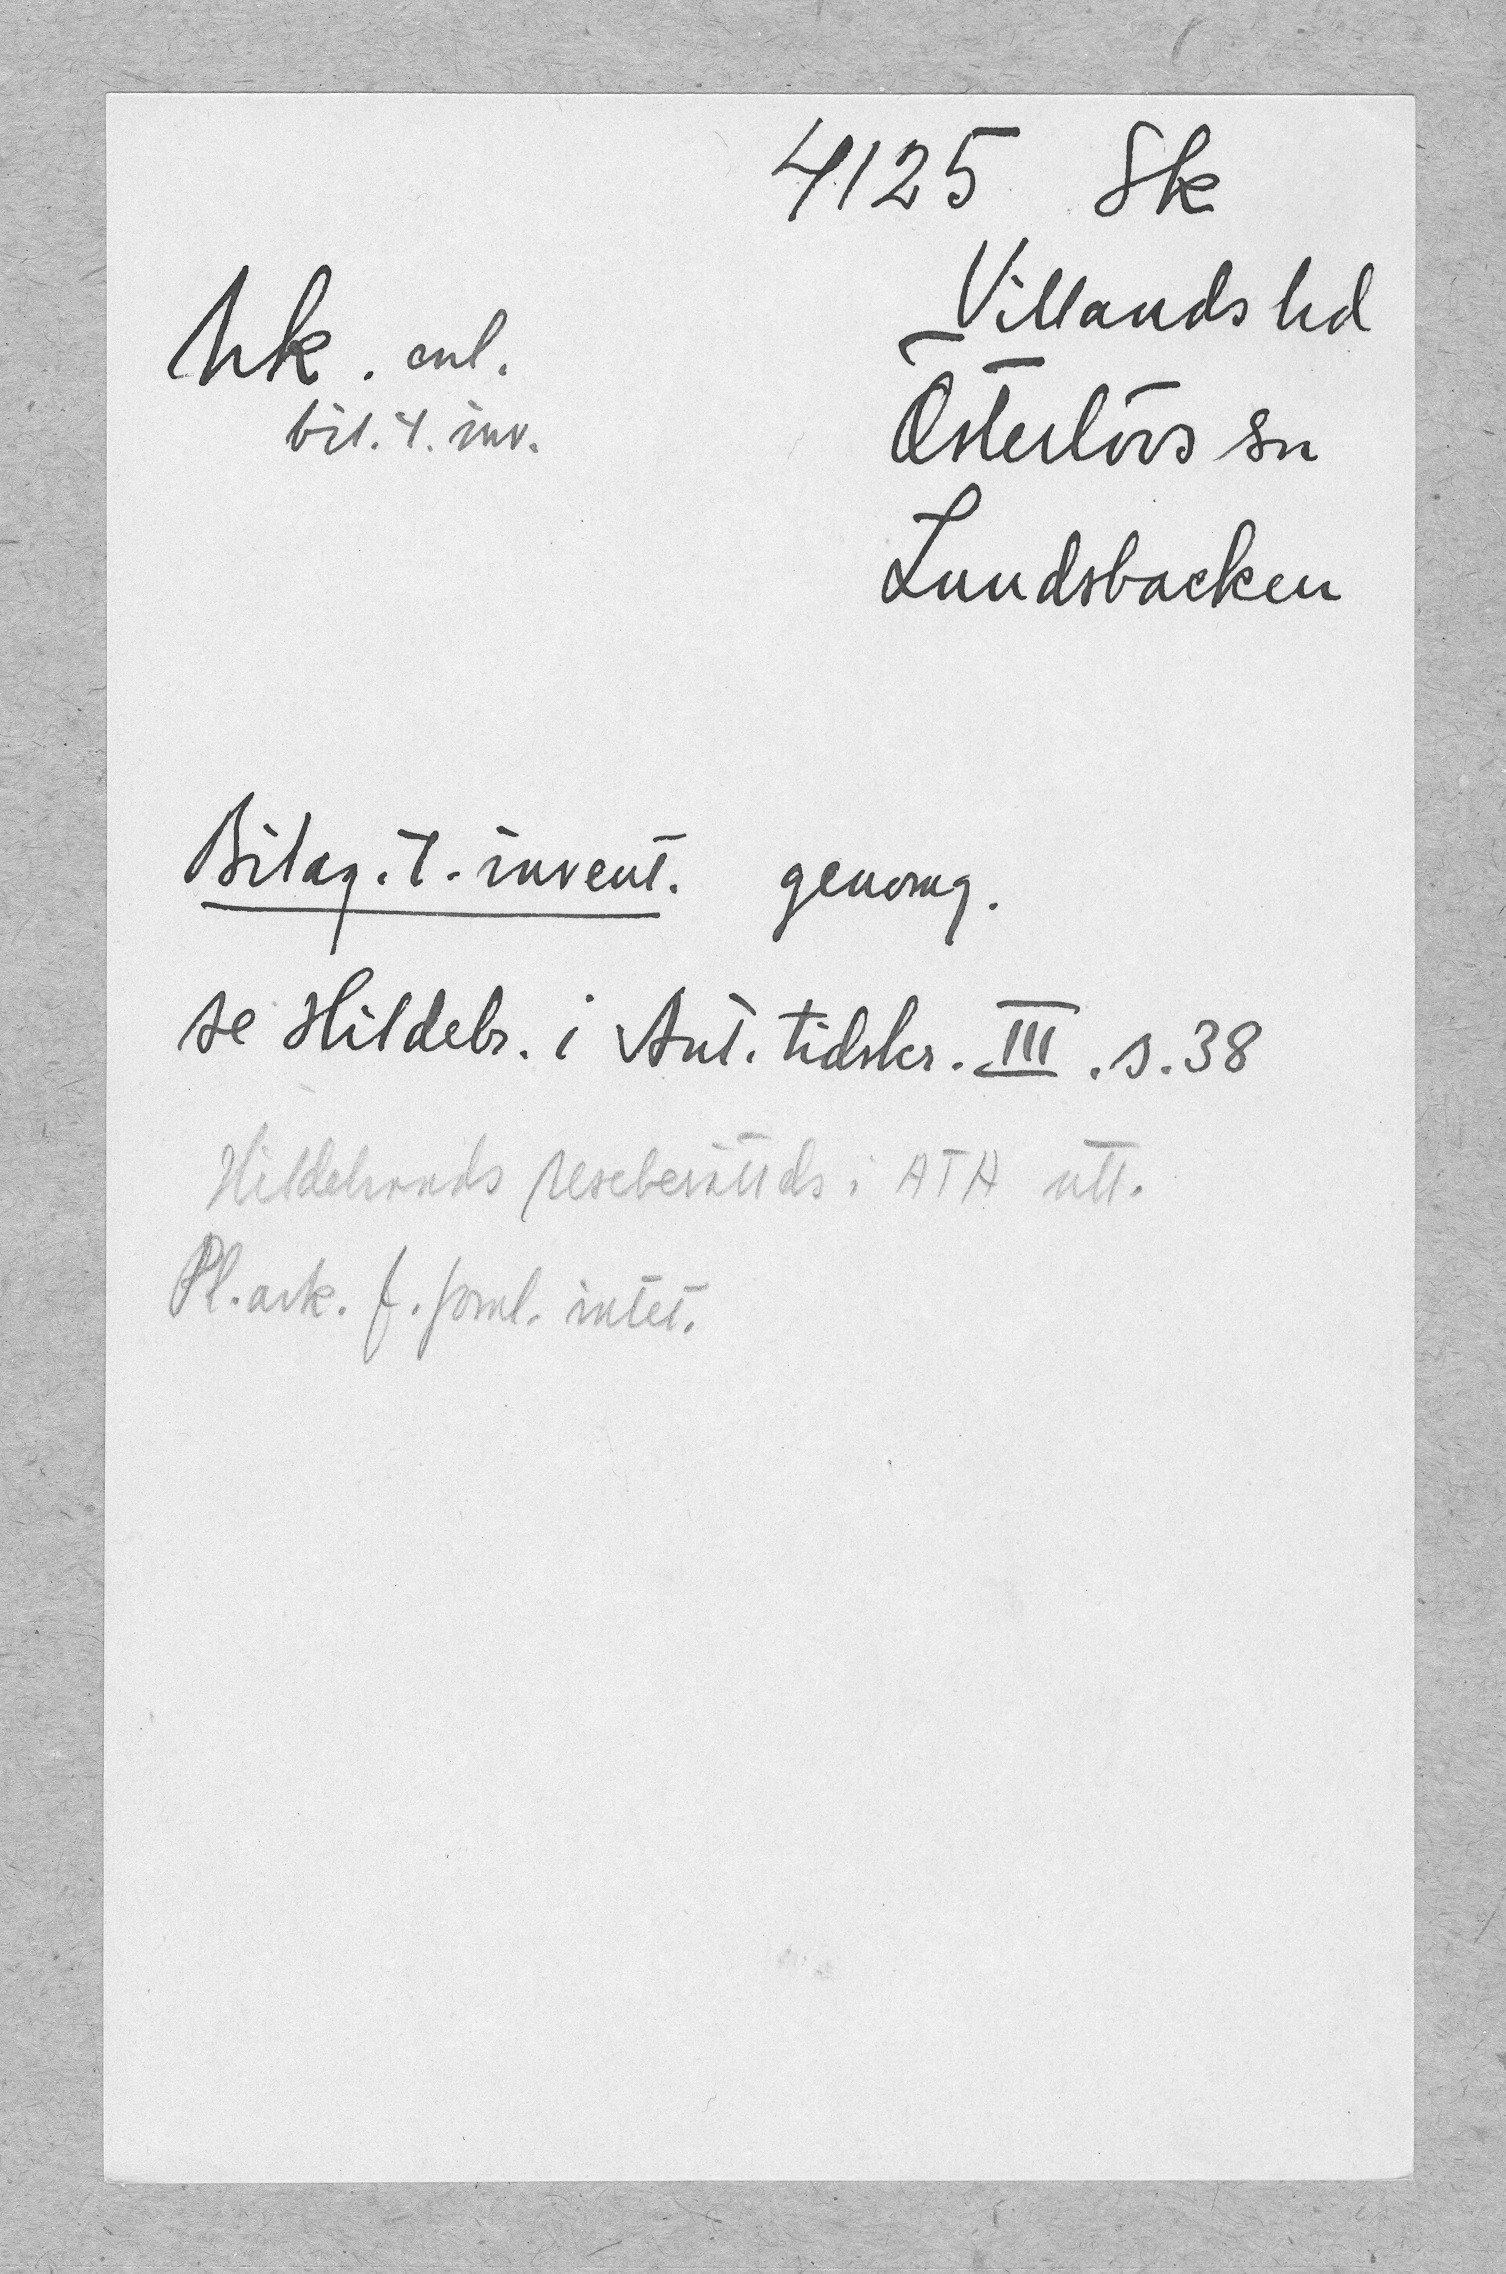 4125 Sk
Villands hd
Österlövs sn
Lundsbacken
hk. enl.
bil. t. inv.
Bilag. t. invent. genomg.
se Hildebr. i Ant. tidskr. III. s. 38
Hildebrands reseberätt ds i ATA utl.
Pl.ark. f. forml. intet.